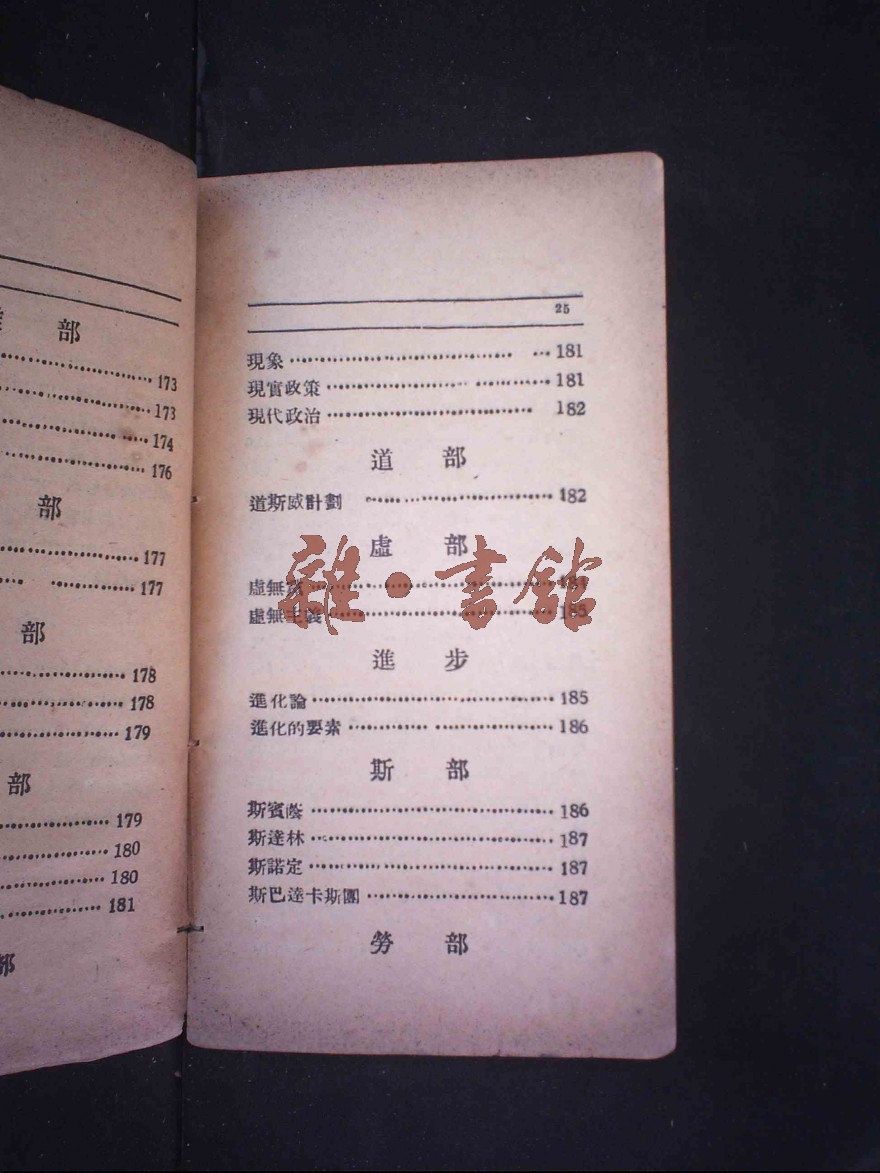 部
173
173
174
176
部
177
177
部
178
178
179
部
179
180
180
181
部
25
現象 181
現實政策 181
現代政治 182
道 部
道斯威計劃 182
虛 部
虛無黨
虛無主義 185
進 步
進化論 185
進化的要素 186
斯 部
斯賓蔭 186
斯達林 187
斯諾定 187
斯巴達卡斯團 187
勞 部
雜·書館